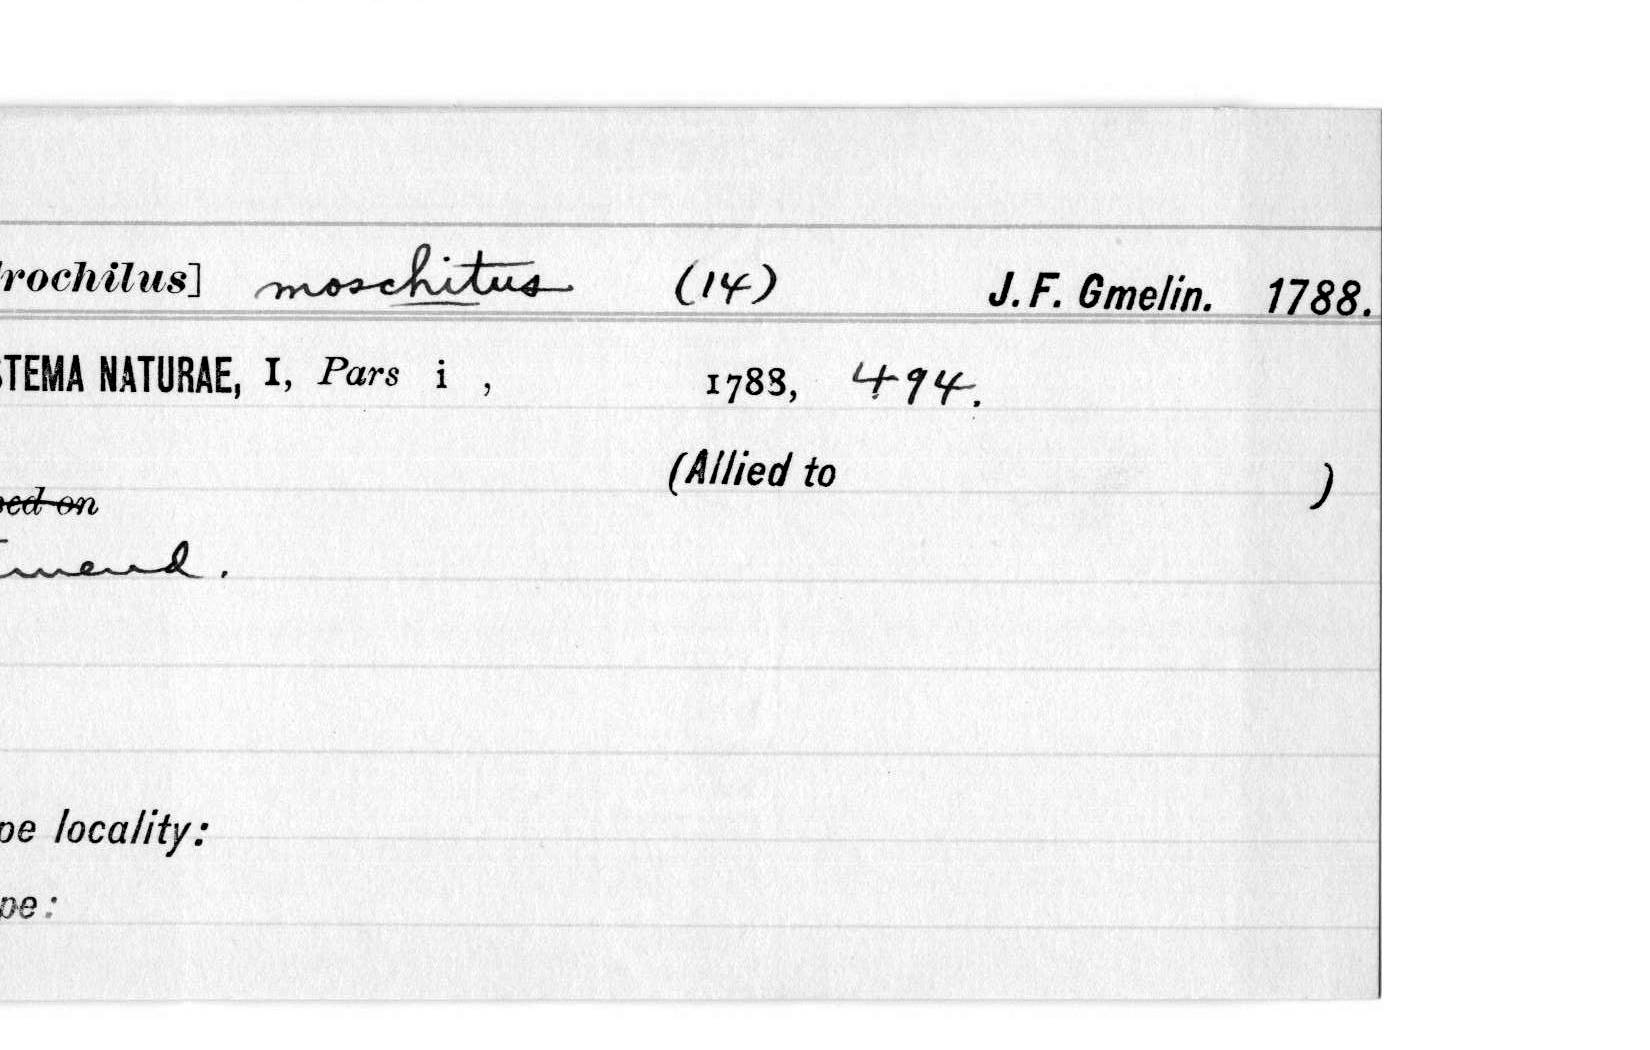 rochilus] moschitus (14) J. F. Gmelin. 1788.
STEMA NATURAE, I, Pars i , 1788, 494.
(Allied to )
sed on
Emend.
pe locality:
pe: